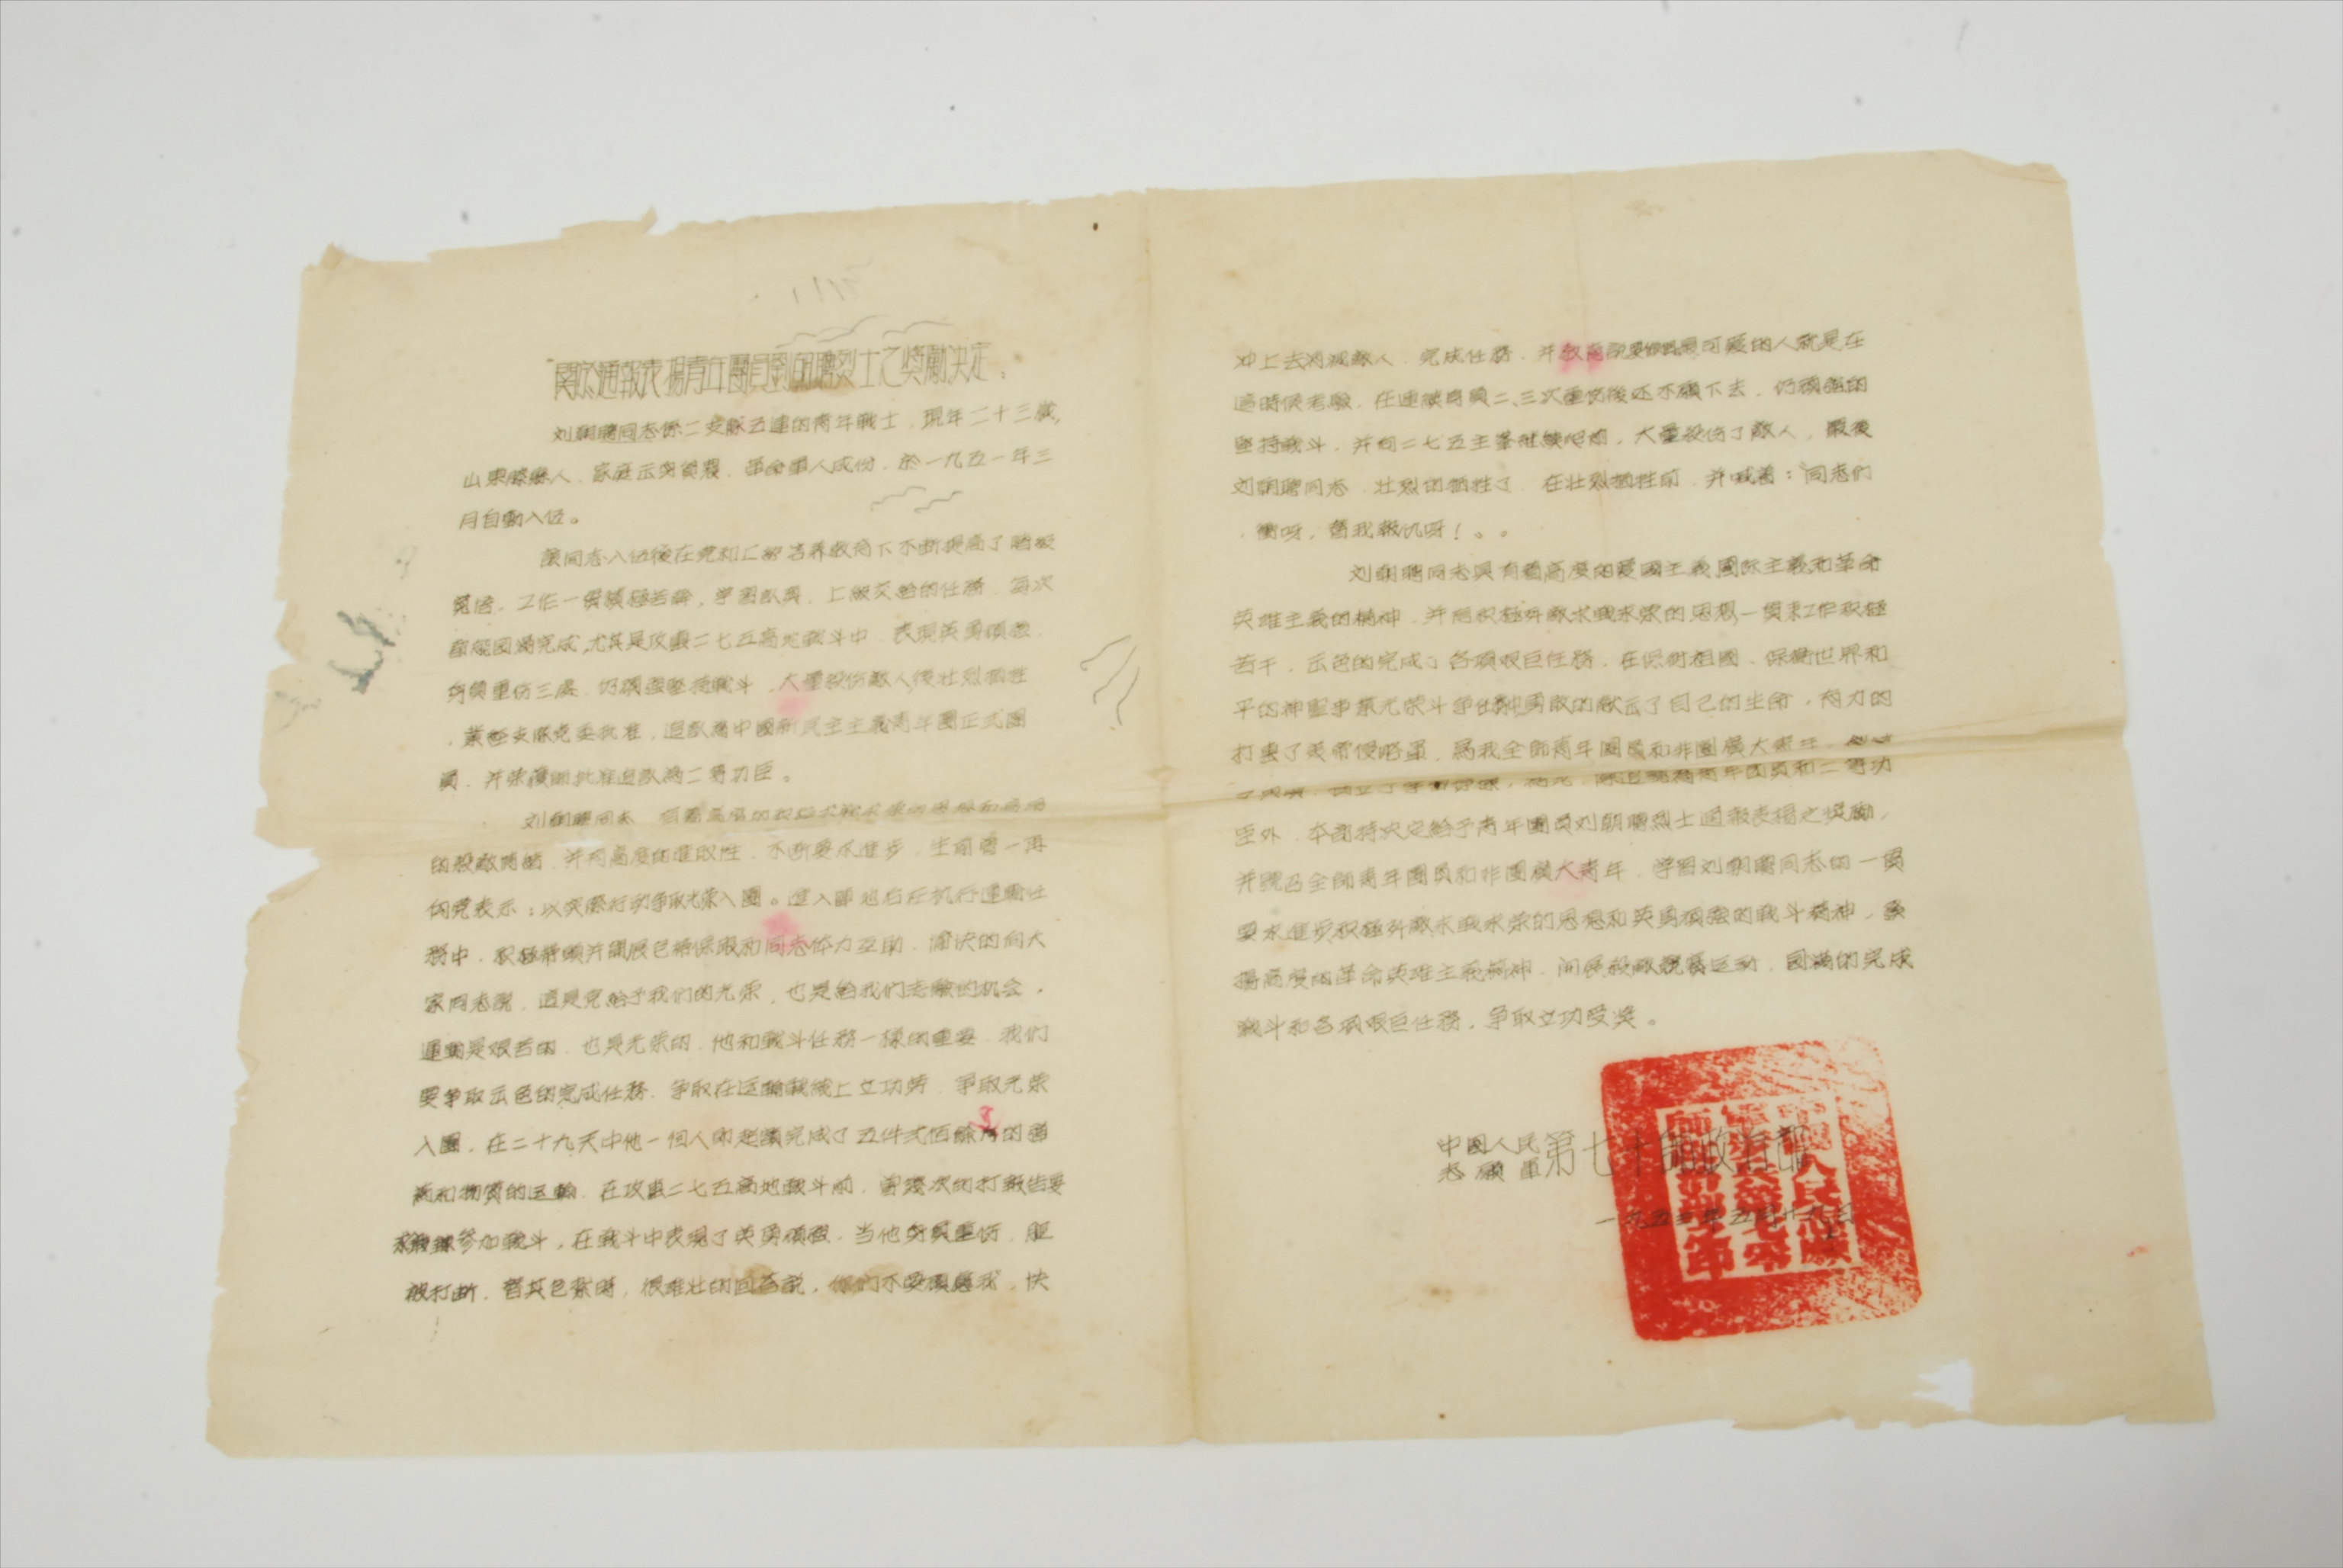 關於通報表揚青年團員劉朝聘烈士之獎勵决定：
刘朝聘同志係二支隊五連的青年戰士．現年二十三歲，
山東滕縣人．家庭云身貧農．革命軍人成份．於一九五一年三
月自動入伍。
該同志入伍後在党和上級培养教育下不断提高了階級
覚悟．工作一貫積極苦幹，学習認真．上級交給的任務．每次
都能圓滿完成，尤其是攻擊二七五高地戰斗中．表現英勇頑强
身負重伤三處．仍頑强堅持戰斗．大量殺伤敵人後壮烈牺牲
．業經支隊党委批准．追認為中國新民主主義青年團正式團
員．并荣獲師批准追認為二等功臣。
刘朝聘同志．有着高度的
的殺敵．并有高度的進取性．不断要求進步．生前曾一再
向党表示：以实際行动争取光荣入團。進入陣地后在执行運輸任
務中．积極带頭并開展包括保服和同志体力互助．愉快的向大
家同志説．這是党給予我们的光荣．也是給我们考驗的机会．
運輸是艰苦的．也是光荣的．他和戰斗任務一樣的重要．我们
要争取云色的完成任務．争取在运輸戰線上立功劳．争取光荣
入團．在二十九天中他一個人即超額完成了五件弍佰餘斤的
和物質的运輸．在攻擊二七五高地戰斗前．曾幾次的打報告要
求参加戰斗，在戰斗中表現了英勇頑强．当他身負重伤．腿
被打断．替其包紮時．很雄壮的回答説，你们不要顧慮我．快
冲上去消滅敵人．完成任務．并可愛的人就是在
這時候考驗．在連續身負二、三次重伤後还不願下去．仍頑强的
坚持戰斗．并向二七五主峯继续爬着，大量殺伤了敵人，最後
刘朝聘同志．壮烈的牺牲了．在壮烈牺牲前．并喊着：同志们
．衝呀，替我報仇呀！。。
刘朝聘同志具有着高度的爱國主義國际主義和革命
英雄主義的精神．并有积極歼敵求戰求荣的思想一貫来工作积極
苦干．云色的完成了各項艰巨任務．在保衛祖國．保衛世界和
平的神聖事業光荣斗争中勇敢的献云了自己的生命．有力的
打擊了美帝侵略軍．為我全師青年團員和非團廣大青年
青年团員和二等功
臣外．本部特决定給予青年團員刘朝聘烈士通報表揚之獎勵，
并號召全師青年團員和非團廣大青年．学習刘朝聘同志的一貫
要求進步积極歼敵求戰求荣的思想和英勇頑强的戰斗精神，發
揚高度的革命英雄主義精神．開展殺敵競賽运动．圓滿的完成
戰斗和各項艰巨任務．争取立功受奖。
中國人民
志願軍第七十師政治部
一九五三年五月十九日